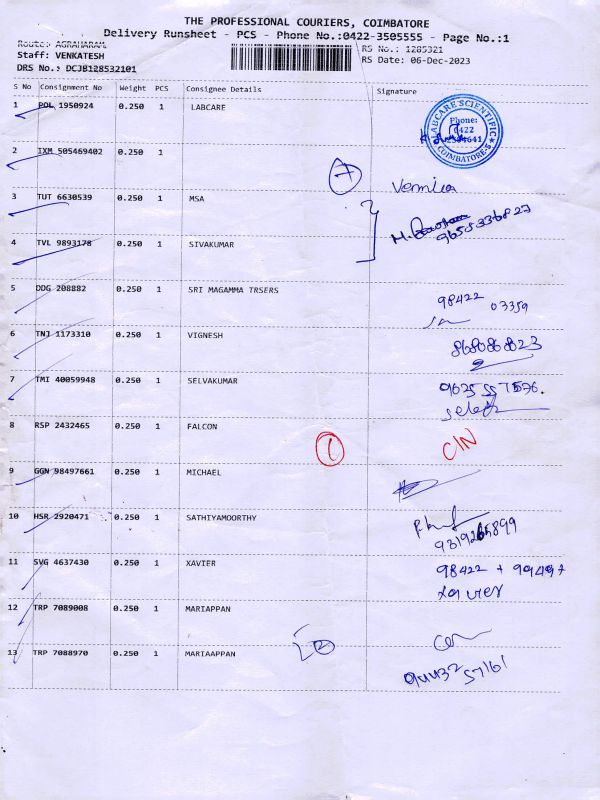 THE PROFESSIONAL COURIERS, COIMBATORE
Delivery Runsheet - PCS - Phone No.:0422-3505555 - Page No.:1
Route: AGRAHARAM
RS No.: 1285321
Staff: VENKATESH
RS Date: 06-Dec-2023
DRS No.: DCJB128532101
S No Consignment No Weight PCS Consignee Details Signature
1 POL 1950924 0.250 1 LABCARE
LABCARE SCIENTIFIC
Phone:
0422
COIMBATORE-5
2 IXM 505469402 0.250 1
3 TUT 6630539 0.250 1 MSA
4 TVL 9893178 0.250 1 SIVAKUMAR
5 DDG 208882 0.250 1 SRI MAGAMMA TRSERS
98422 03359
6 TNJ 1173310 0.250 1 VIGNESH
7 TMI 40059948 0.250 1 SELVAKUMAR
8 RSP 2432465 0.250 1 FALCON
1 CIN
9 GGN 98497661 0.250 1 MICHAEL
10 HSR 2920471 0.250 1 SATHIYAMOORTHY
11 SVG 4637430 0.250 1 XAVIER
98422 + 99497
Xavier
12 TRP 7089008 0.250 1 MARIAPPAN
2
13 TRP 7088970 0.250 1 MARIAAPPAN
94432 57161